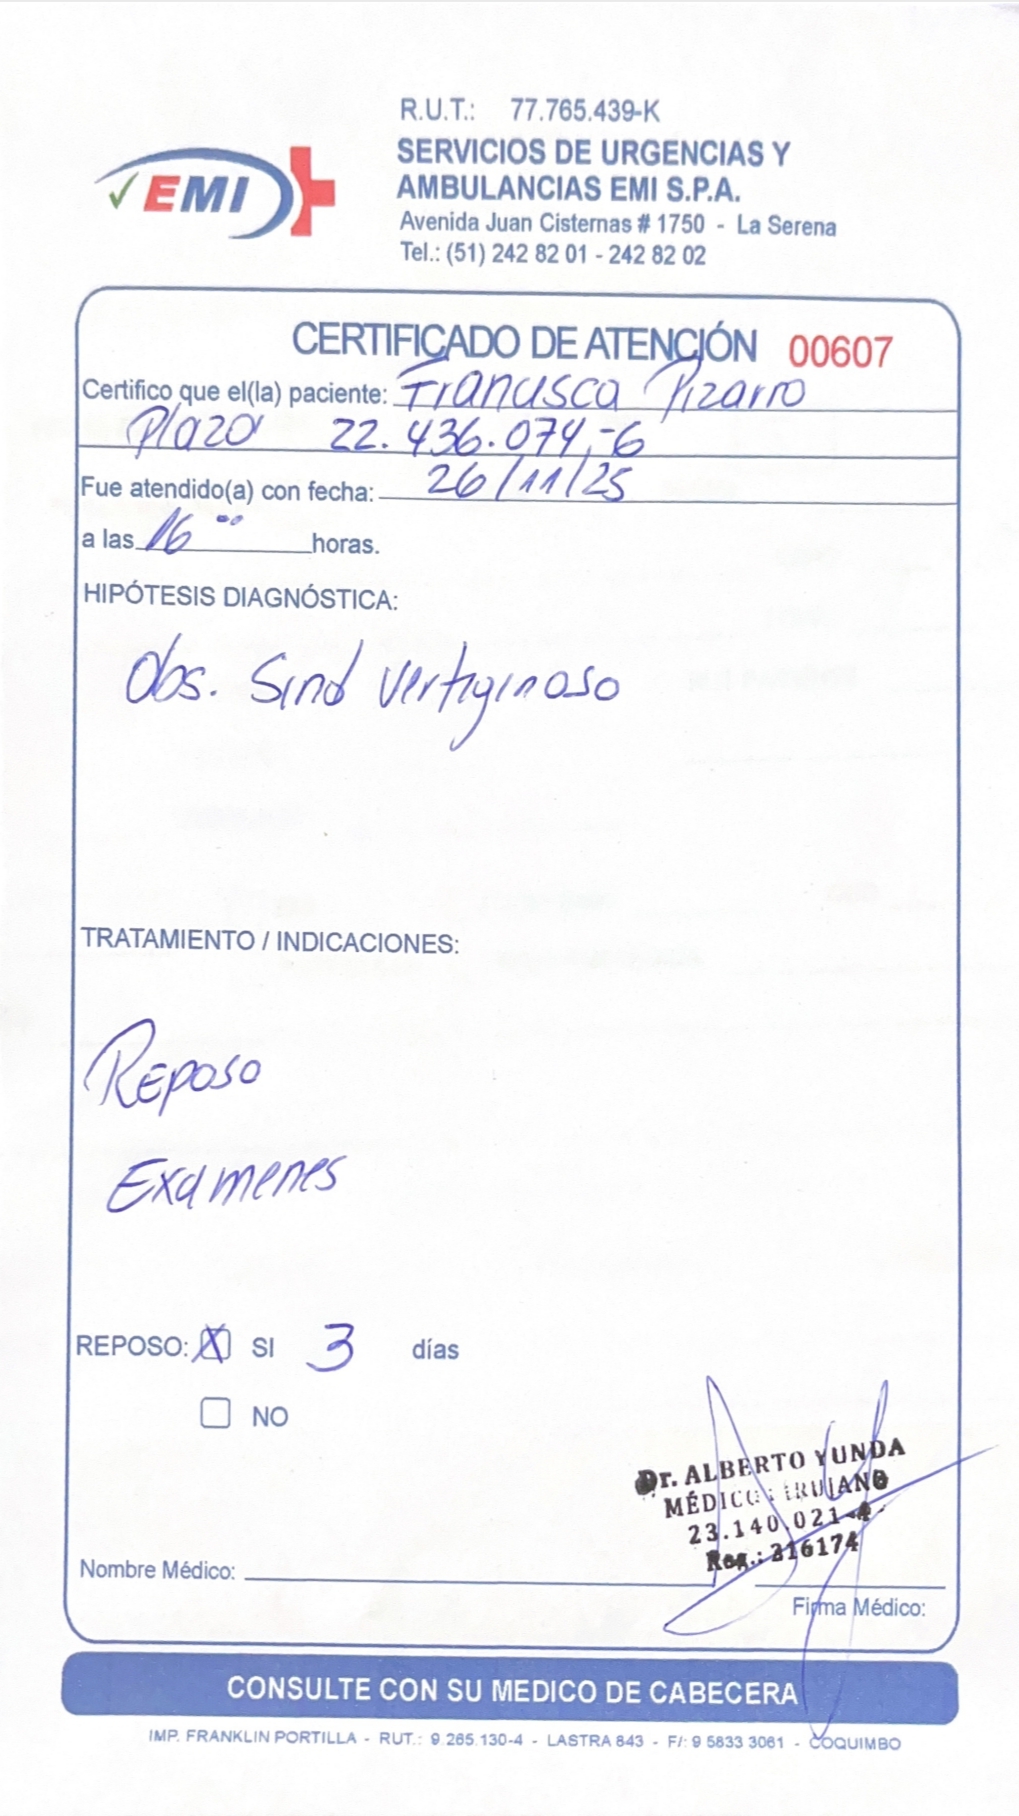 R.U.T.: 77.765.439-K
EMI
SERVICIOS DE URGENCIAS Y
AMBULANCIAS EMI S.P.A.
Avenida Juan Cisternas # 1750 - La Serena
Tel.: (51) 242 82 01 - 242 82 02
CERTIFICADO DE ATENCIÓN 00607
Certifico que el(la) paciente: Francisca Pizarro
Plaza 22.436.074,-6
Fue atendido(a) con fecha: 26/11/25
a las 16 °° horas.
HIPÓTESIS DIAGNÓSTICA:
Obs. Sind Vertiginoso
TRATAMIENTO / INDICACIONES:
Reposo
Examenes
REPOSO: X SI 3 días
NO
Dr. ALBERTO YUNDA
MÉDICO CIRUJANO
23.140.021-4
Reg.: 216174
Nombre Médico:
Firma Médico:
CONSULTE CON SU MEDICO DE CABECERA
IMP. FRANKLIN PORTILLA - RUT.: 9.265.130-4 - LASTRA 843 - F/: 9 5833 3061 - COQUIMBO